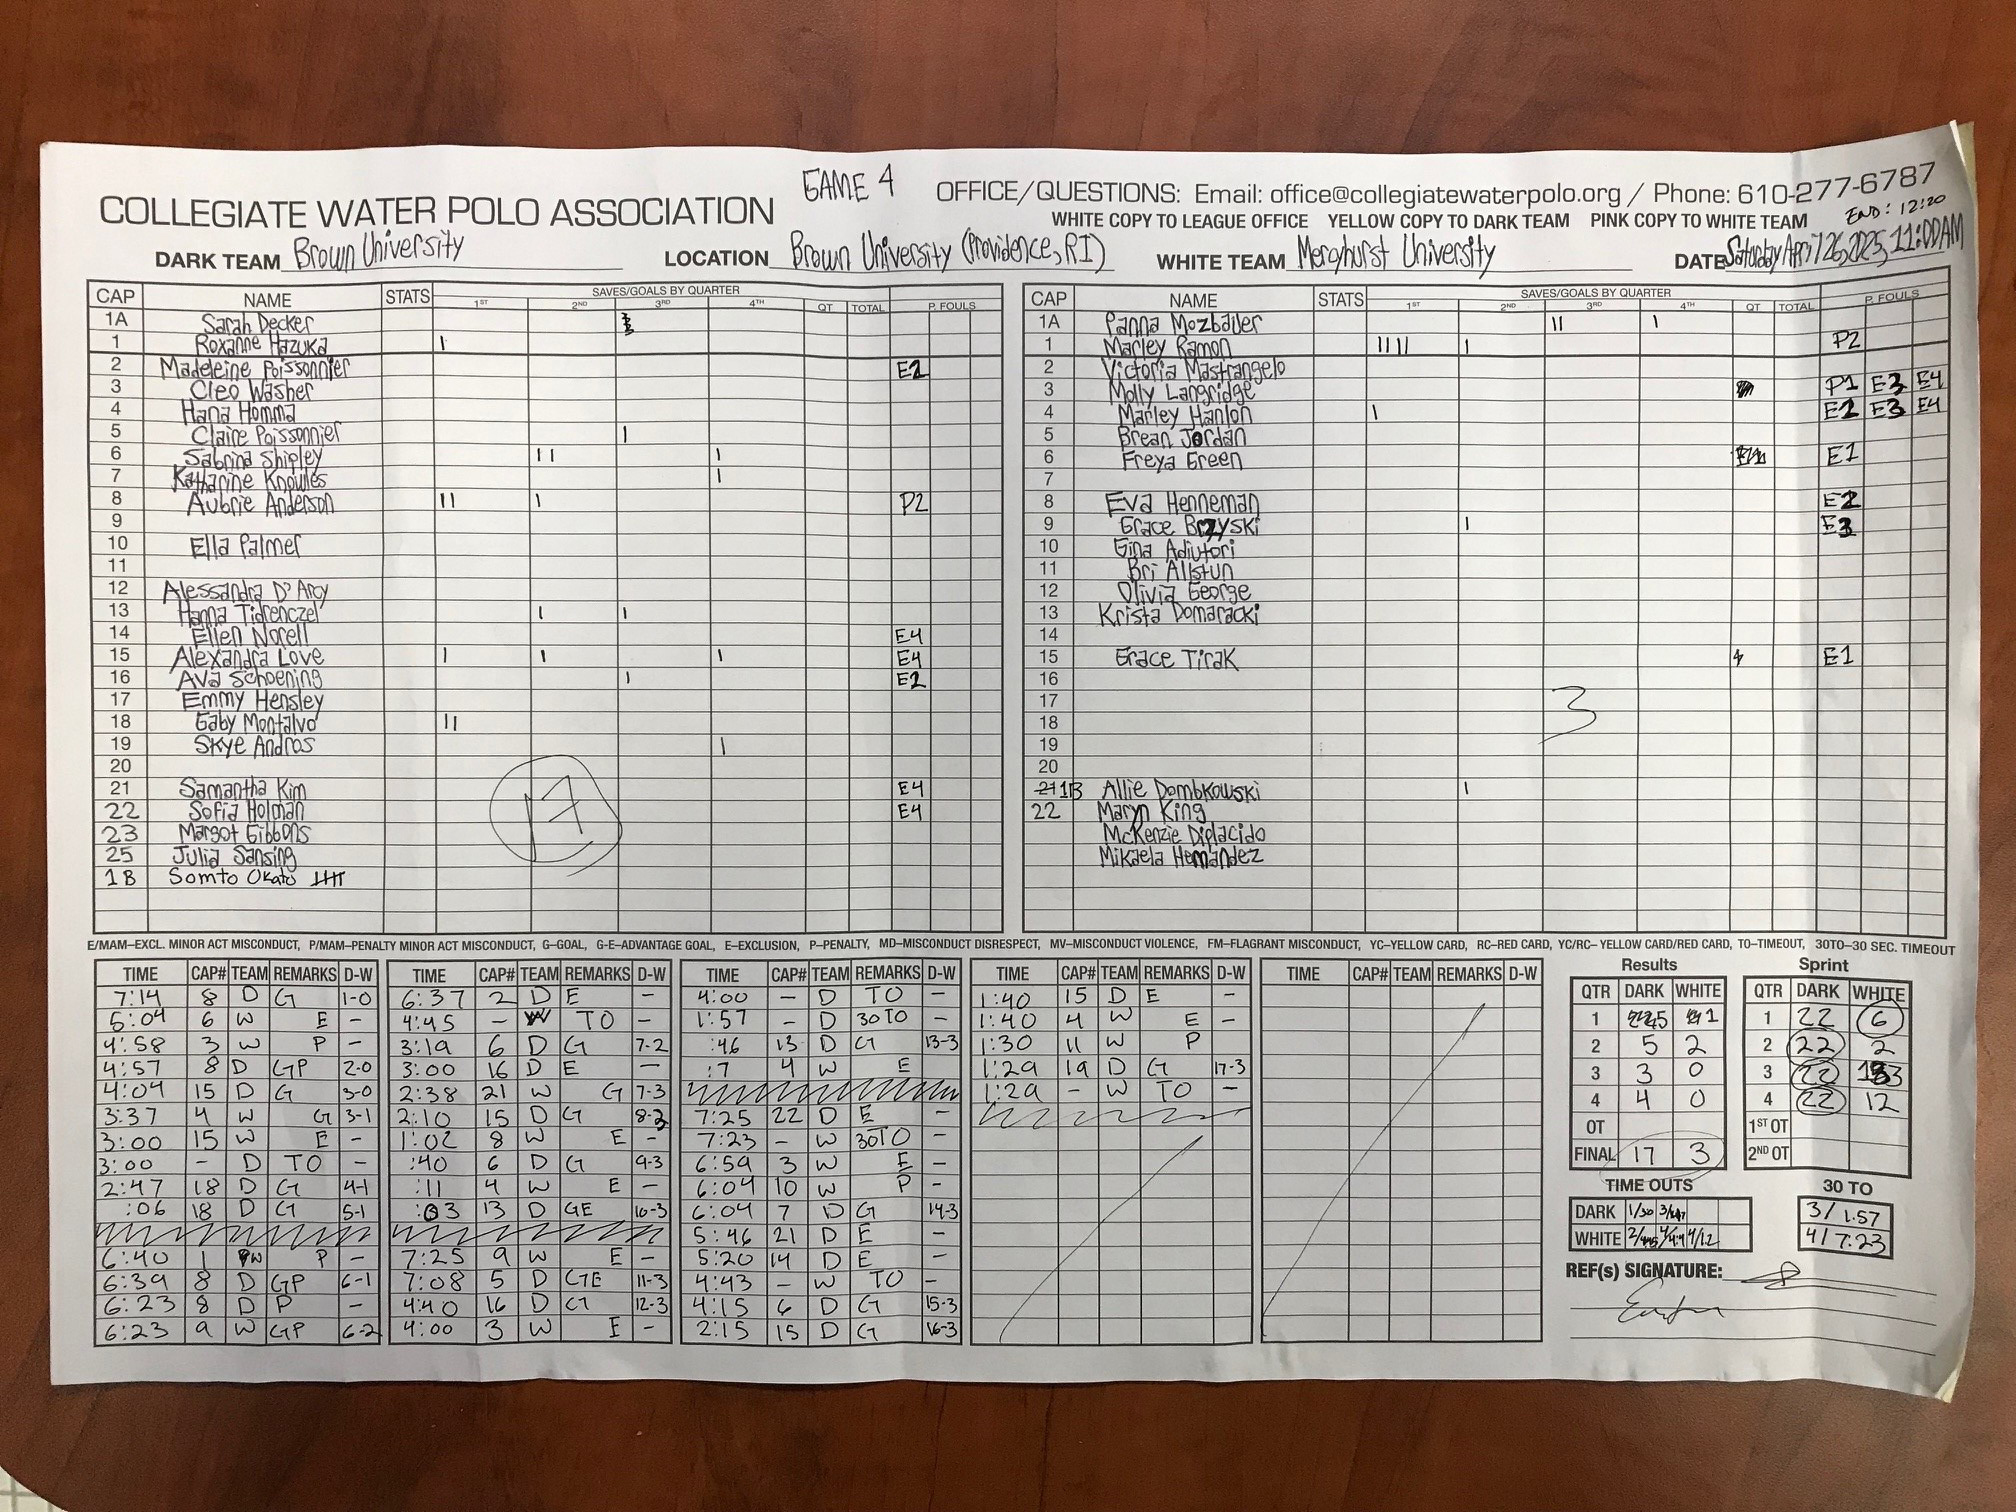 GAME 4
COLLEGIATE WATER POLO ASSOCIATION OFFICE/QUESTIONS: Email: office@collegiatewaterpolo.org / Phone: 610-277-6787
WHITE COPY TO LEAGUE OFFICE YELLOW COPY TO DARK TEAM PINK COPY TO WHITE TEAM END: 12:20
DARK TEAM Brown University LOCATION Brown University (Providence, RI) WHITE TEAM Mercyhurst University DATE Saturday April 26, 2025, 11:00AM
CAP NAME STATS SAVES/GOALS BY QUARTER
1ST 2ND 3RD 4TH OT TOTAL P. FOULS
1A Sarah Decker
1 Roxanne Hazuka I
2 Madeleine Poissonnier E2
3 Cleo Washer
4 Hana Homma
5 Claire Poissonnier I
6 Sabrina Shipley II I
7 Katharine Knowles I
8 Aubrie Anderson II I P2
9
10 Ella Palmer
11
12 Alessandra D'Arcy
13 Hanna Tidrenczel I I
14 Ellen Norell E4
15 Alexandra Love I I I E4
16 Ava Schoening I E2
17 Emmy Hensley
18 Gaby Montalvo II
19 Skye Andros I
20
21 Samantha Kim E4
22 Sofia Holman E4
23 Margot Gibbons
25 Julia Sansing
1B Somto Okafo
17
CAP NAME STATS SAVES/GOALS BY QUARTER
1ST 2ND 3RD 4TH OT TOTAL P. FOULS
1A Panna Mozbauer II I
1 Marley Ramon IIII I P2
2 Victoria Mastrangelo
3 Molly Langridge P1 E3 E4
4 Marley Hanlon I E2 E3 E4
5 Brean Jordan
6 Freya Green E1
7
8 Eva Henneman E2
9 Grace Brzyski I E3
10 Gina Adiutori
11 Bri Allstun
12 Olivia George
13 Krista Domaracki
14
15 Grace Tirak E1
16
17
18
19
20
21 1B Allie Dombkowski I
22 Maryn King
McKenzie Diplacido
Mikaela Hernandez
3
E/MAM–EXCL. MINOR ACT MISCONDUCT, P/MAM–PENALTY MINOR ACT MISCONDUCT, G–GOAL, G-E–ADVANTAGE GOAL, E–EXCLUSION, P–PENALTY, MD–MISCONDUCT DISRESPECT, MV–MISCONDUCT VIOLENCE, FM–FLAGRANT MISCONDUCT, YC–YELLOW CARD, RC–RED CARD, YC/RC–YELLOW CARD/RED CARD, TO–TIMEOUT, 30TO–30 SEC. TIMEOUT
TIME CAP# TEAM REMARKS D-W
7:14 8 D G 1-0
5:04 6 W E –
4:58 3 W P –
4:57 8 D GP 2-0
4:04 15 D G 3-0
3:37 4 W G 3-1
3:00 15 W E –
3:00 – D TO –
2:47 18 D G 4-1
:06 18 D G 5-1
6:40 1 W P –
6:39 8 D GP 6-1
6:23 8 D P –
6:23 9 W GP 6-2
TIME CAP# TEAM REMARKS D-W
6:37 2 D E –
4:45 – W TO –
3:19 6 D G 7-2
3:00 16 D E –
2:38 21 W G 7-3
2:10 15 D G 8-3
1:02 8 W E –
:40 6 D G 9-3
:11 4 W E –
:03 13 D GE 10-3
7:25 9 W E –
7:08 5 D GE 11-3
4:40 16 D G 12-3
4:00 3 W E –
TIME CAP# TEAM REMARKS D-W
4:00 – D TO –
1:57 – D 30TO –
:46 13 D G 13-3
:7 4 W E
7:25 22 D E –
7:23 – W 30TO –
6:59 3 W E –
6:04 10 W P –
6:04 7 D G 14-3
5:46 21 D E –
5:20 14 D E –
4:43 – W TO –
4:15 6 D G 15-3
2:15 15 D G 16-3
TIME CAP# TEAM REMARKS D-W
1:40 15 D E –
1:40 4 W E –
1:30 11 W P
1:29 19 D G 17-3
1:29 – W TO –
TIME CAP# TEAM REMARKS D-W
Results
QTR DARK WHITE
1 5 1
2 5 2
3 3 0
4 4 0
OT
FINAL 17 3
Sprint
QTR DARK WHITE
1 22 6
2 22 2
3 22
4 22 12
1ST OT
2ND OT
TIME OUTS
DARK
WHITE
30 TO
3/1:57
4/7:23
REF(s) SIGNATURE: